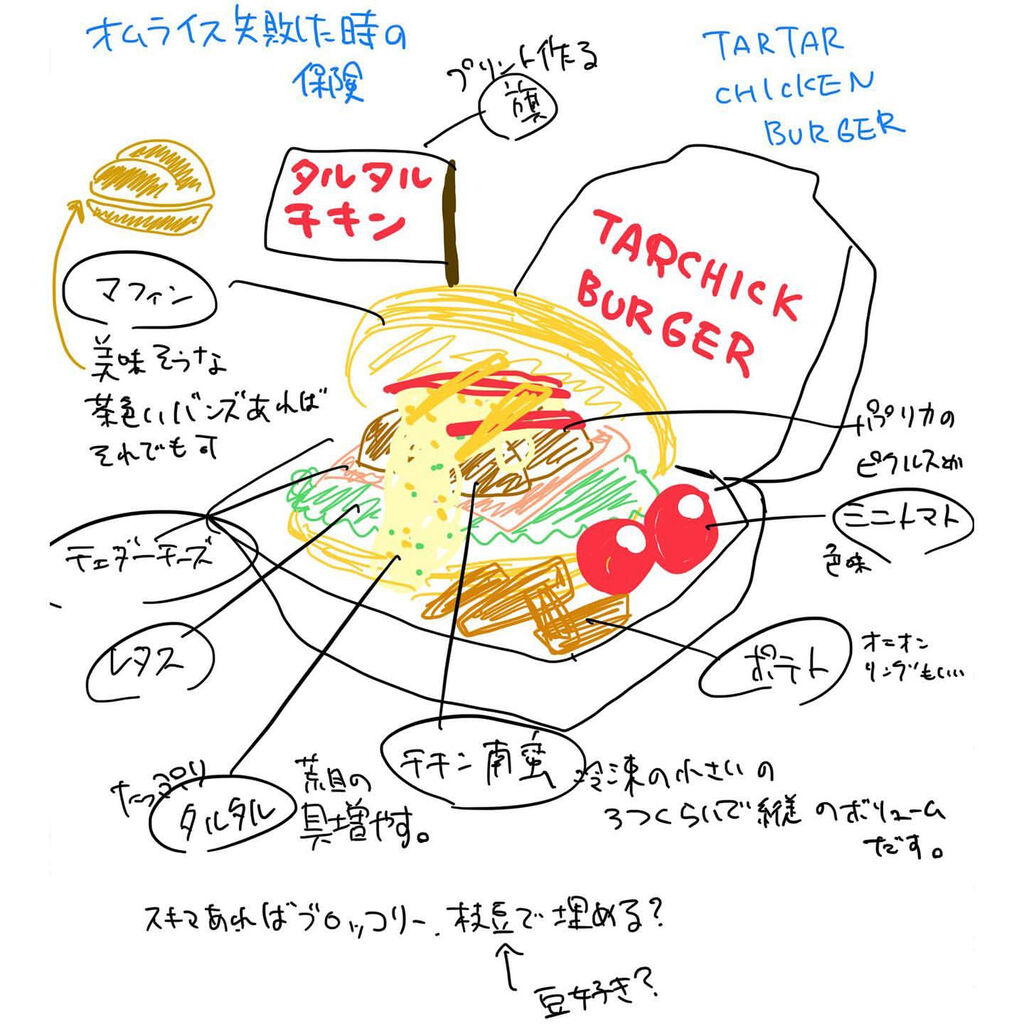 オムライス失敗した時の
保険
TARTAR
CHICKEN
BURGER
プリント作る
旗
タルタル
チキン
TARCHICK
BURGER
マフィン
美味そうな
茶色いバンズあれば
それでも可
パプリカの
ピクルスか
ミニトマト
色味
チェダーチーズ
レタス
ポテト
オニオン
リングもいい…
たっぷり
タルタル
荒目の
具増やす。
チキン南蛮
冷凍の小さいの
3つくらいで縦のボリューム
だす。
スキマあればブロッコリー、枝豆で埋める?
豆好き?